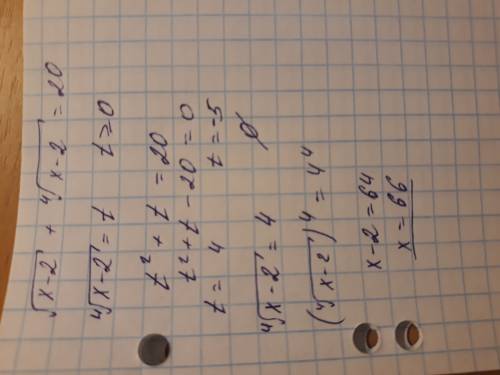 √x-2 + ⁴√x-2 = 20
⁴√x-2 = t t ≥ 0
t² + t = 20
t² + t - 20 = 0
t = 4 t = -5
∅
⁴√x-2 = 4
(⁴√x-2)⁴ = 4⁴
x-2 = 64
x = 66